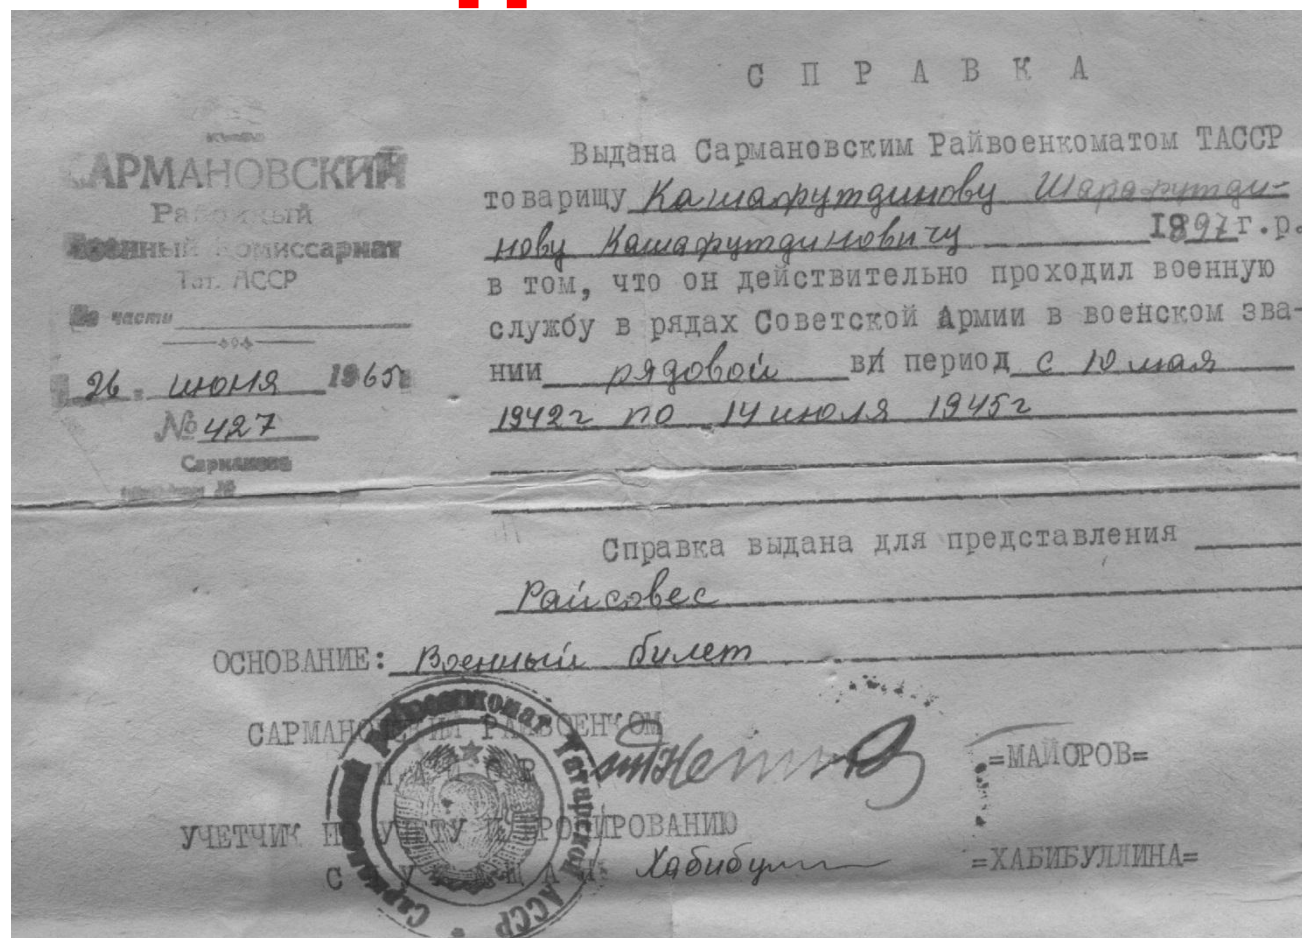 С П Р А В К А
САРМАНОВСКИЙ
Районный
Военный Комиссариат
Тат. АССР
По части
26. июня 1965г
№ 427
Сарманово
Выдана Сармановским Райвоенкоматом ТАССР
товарищу Кашафутдинову Шарафутди-
нову Кашафутдиновичу 1897г.р.
в том, что он действительно проходил военную
службу в рядах Советской Армии в военском зва-
нии рядовой в период с 10 мая
1942г по 14 июля 1945г
Справка выдана для представления
Райсовес
ОСНОВАНИЕ: Военный билет
САРМАНОВСКИЙ РАЙВОЕНКОМ
МАЙОР
=МАЙОРОВ=
УЧЕТЧИК ПО УЧЕТУ И БРОНИРОВАНИЮ
С У ЩАЯ Хабибулл
=ХАБИБУЛЛИНА=
Сармановский райвоенкомат Татарской АССР